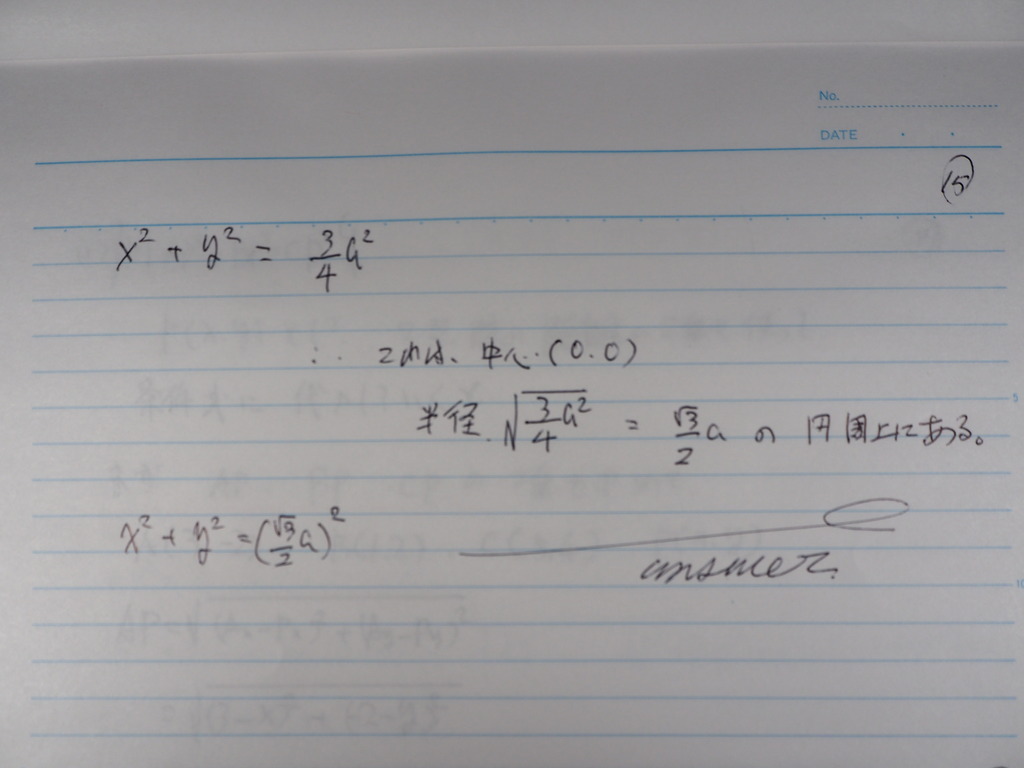 No.
DATE
⑮
x² + y² = 3/4 a²
∴ これは、中心(0.0)
半径 √(3/4 a²) = √3/2 a の円周上にある。
x² + y² = (√3/2 a)²
answer.